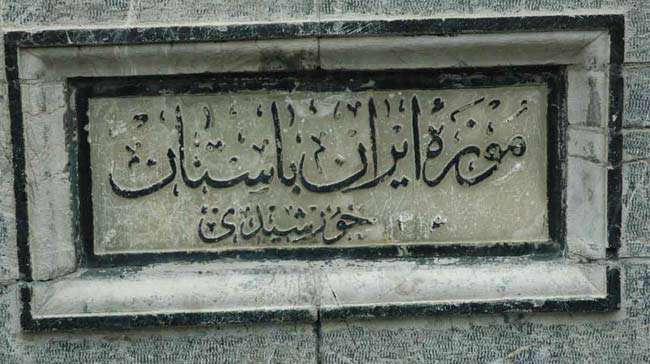 موزه ایران باستان
خورشیدی